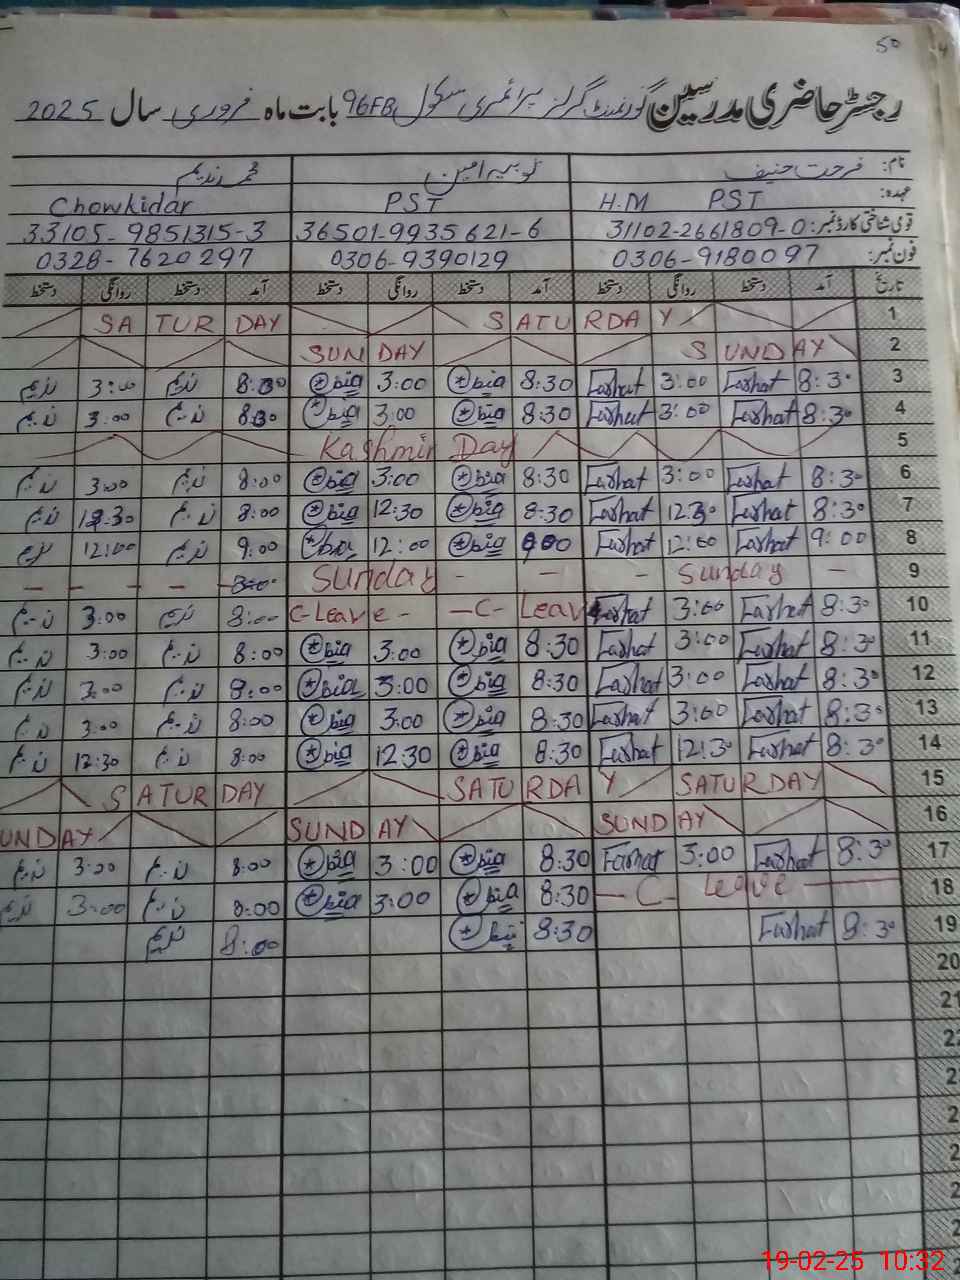 50
رجسٹر حاضری مدرسین گورنمنٹ گرلز پرائمری سکول 96FB بابت ماہ فروری سال 2025
نام: فرحت حنیف ثوبیہ امین محمد ندیم
عہدہ: H.M PST PST Chowkidar
قومی شناختی کارڈ نمبر: 31102-2661809-0 36501-9935621-6 33105-9851315-3
فون نمبر: 0306-9180097 0306-9390129 0328-7620297
تاریخ آمد دستخط روانگی دستخط آمد دستخط روانگی دستخط آمد دستخط روانگی دستخط
1 SATURDAY SATURDAY
2 SUNDAY SUNDAY
3 8:30 Farhat 3:00 Farhat 8:30 bia 3:00 bia 8:30 ندیم 3:00 ندیم
4 8:30 Farhat 3:00 Farhat 8:30 bia 3:00 bia 8:30 ندیم 3:00 ندیم
5 Kashmir Day
6 8:30 Farhat 3:00 Farhat 8:30 bia 3:00 bia 8:00 ندیم 3:00 ندیم
7 8:30 Farhat 12:30 Farhat 8:30 bia 12:30 bia 8:00 ندیم 12:30 ندیم
8 9:00 Farhat 12:00 Farhat 9:00 bia 12:00 bia 9:00 ندیم 12:00 ندیم
9 Sunday Sunday
10 8:30 Farhat 3:00 Farhat C-Leave C-Leave 8:00 ندیم 3:00 ندیم
11 8:30 Farhat 3:00 Farhat 8:30 bia 3:00 bia 8:00 ندیم 3:00 ندیم
12 8:30 Farhat 3:00 Farhat 8:30 bia 3:00 bia 8:00 ندیم 3:00 ندیم
13 8:30 Farhat 3:00 Farhat 8:30 bia 3:00 bia 8:00 ندیم 3:00 ندیم
14 8:30 Farhat 12:30 Farhat 8:30 bia 12:30 bia 8:00 ندیم 12:30 ندیم
15 SATURDAY SATURDAY SATURDAY
16 SUNDAY SUNDAY UNDAY
17 8:30 Farhat 3:00 Farhat 8:30 bia 3:00 bia 8:00 ندیم 3:00 ندیم
18 C-Leave 8:30 bia 3:00 bia 8:00 ندیم 3:00 ندیم
19 8:30 Farhat 8:30 bia 8:00 ندیم
20
21
19-02-25 10:32